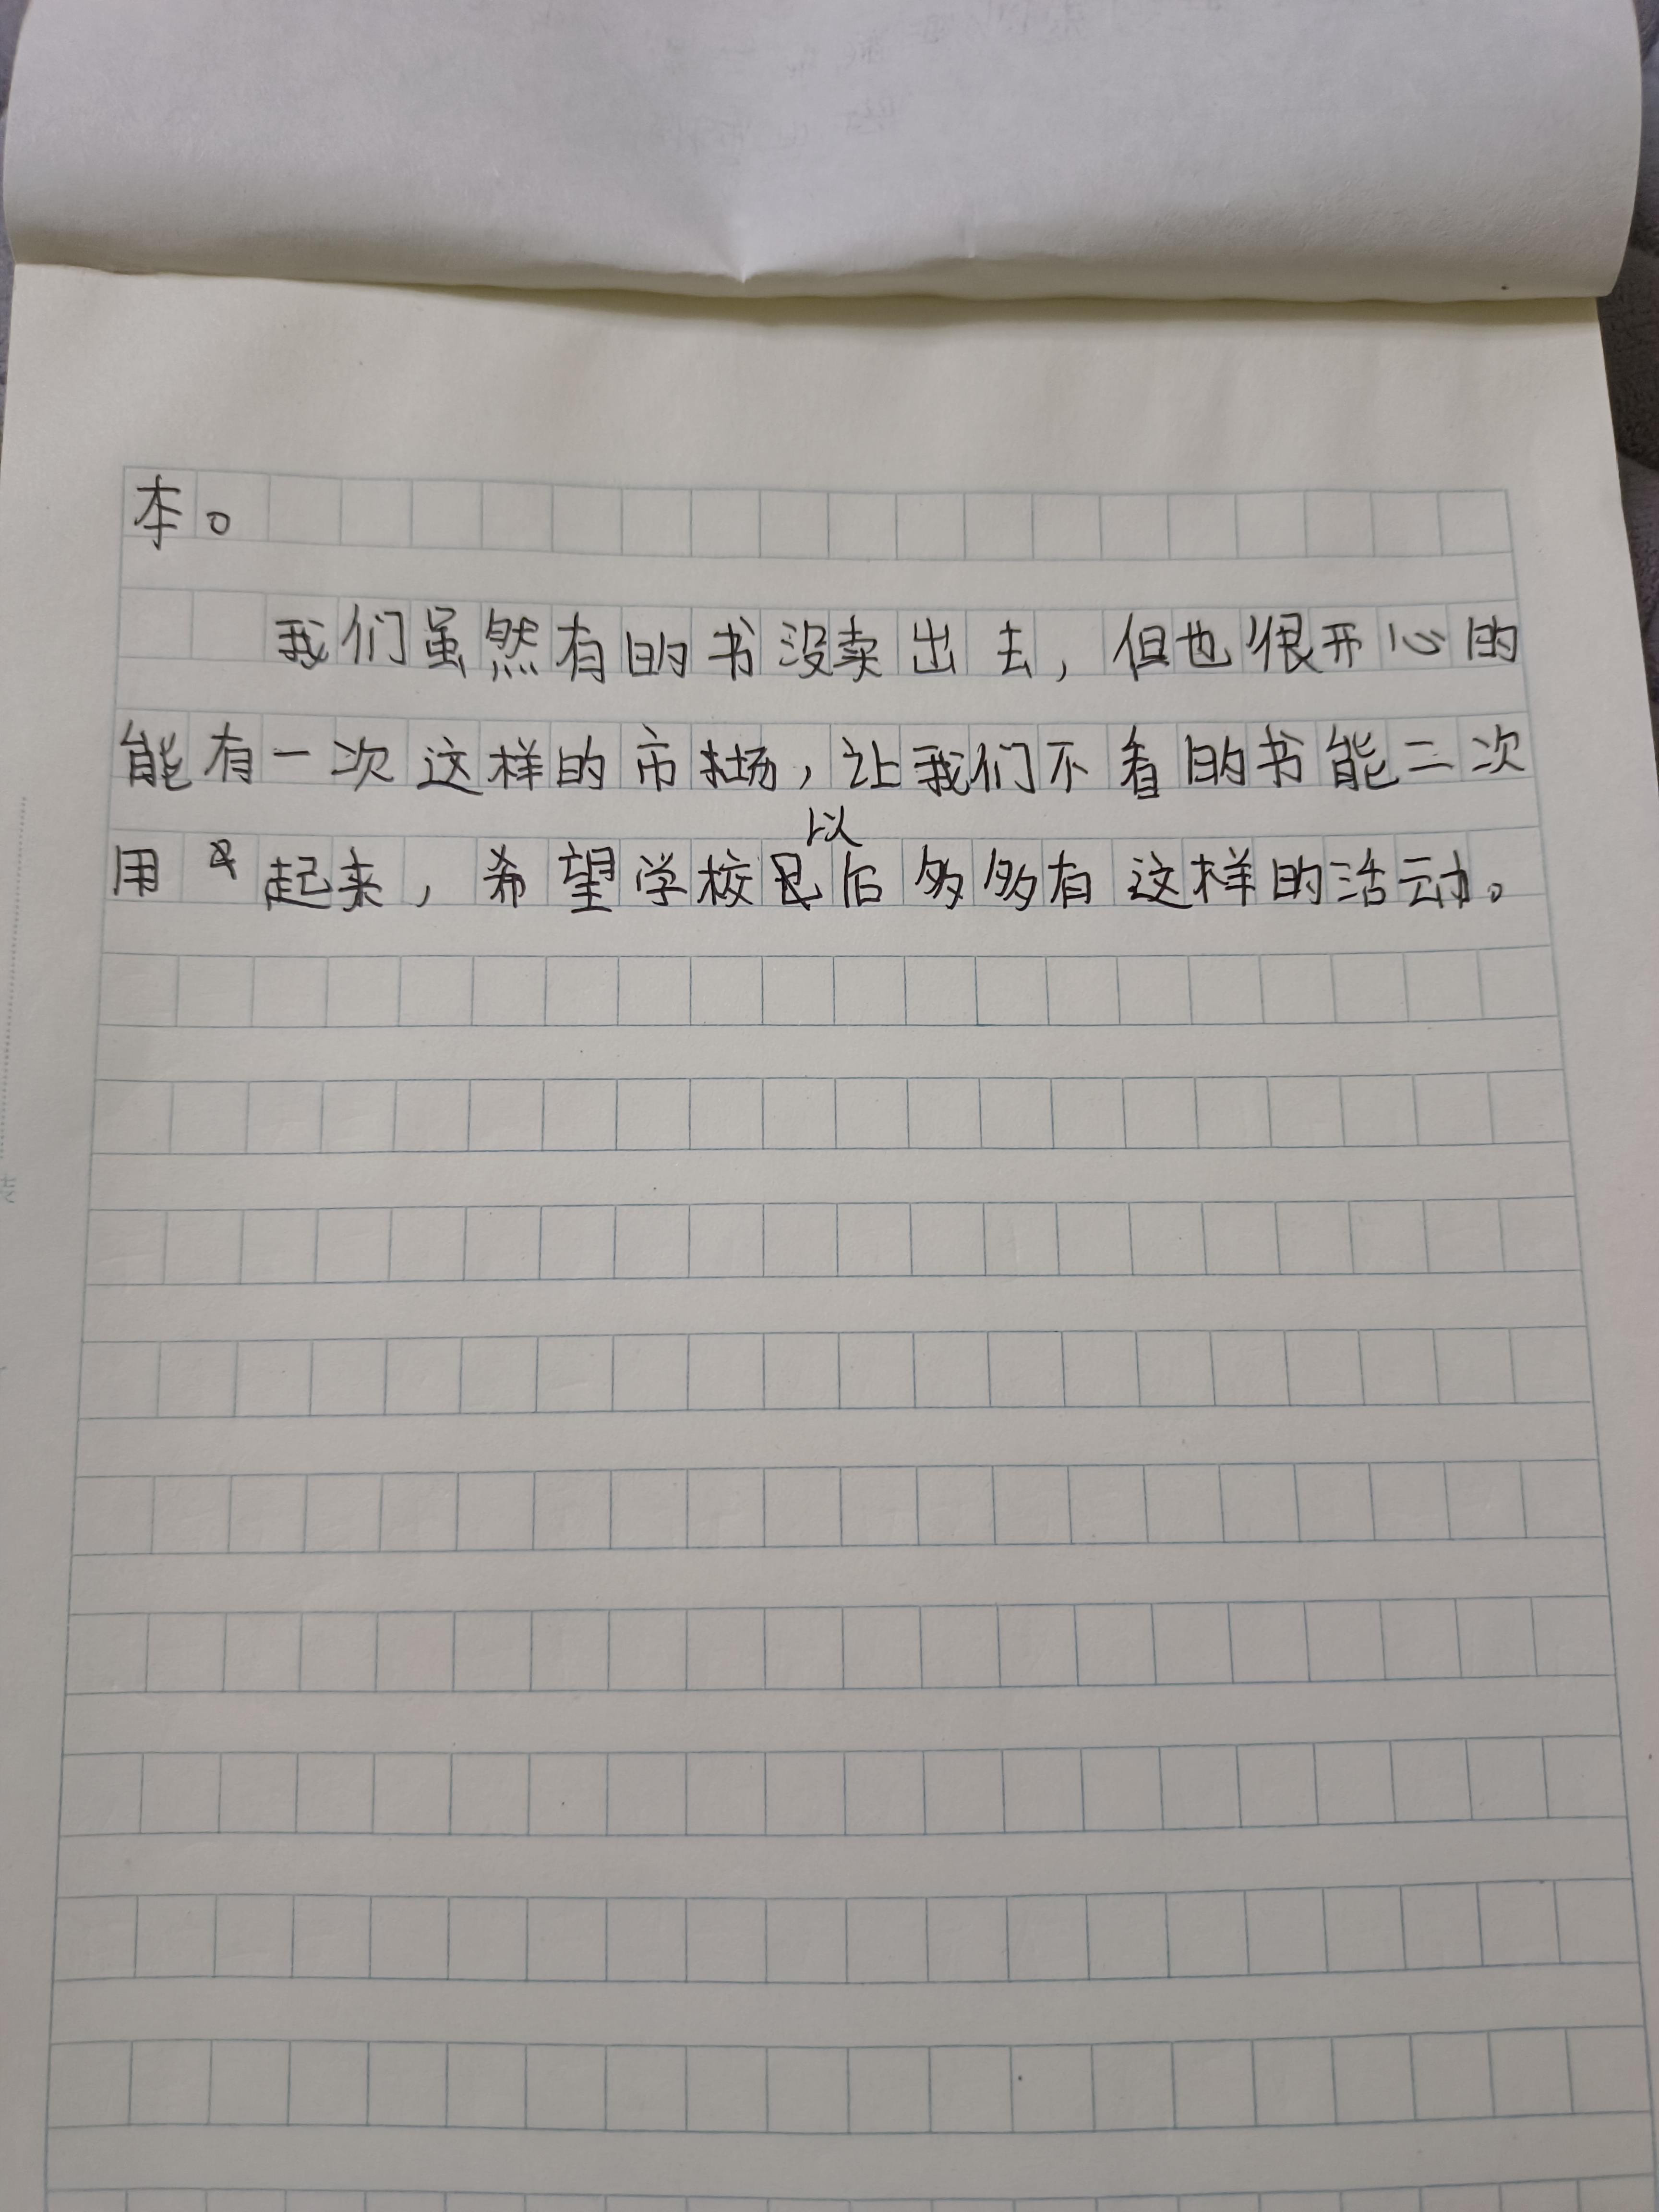 本。
我们虽然有的书没卖出去,但也很开心的
能有一次这样的市场,让我们不看的书能二次
用起来,希望学校以后多多有这样的活动。